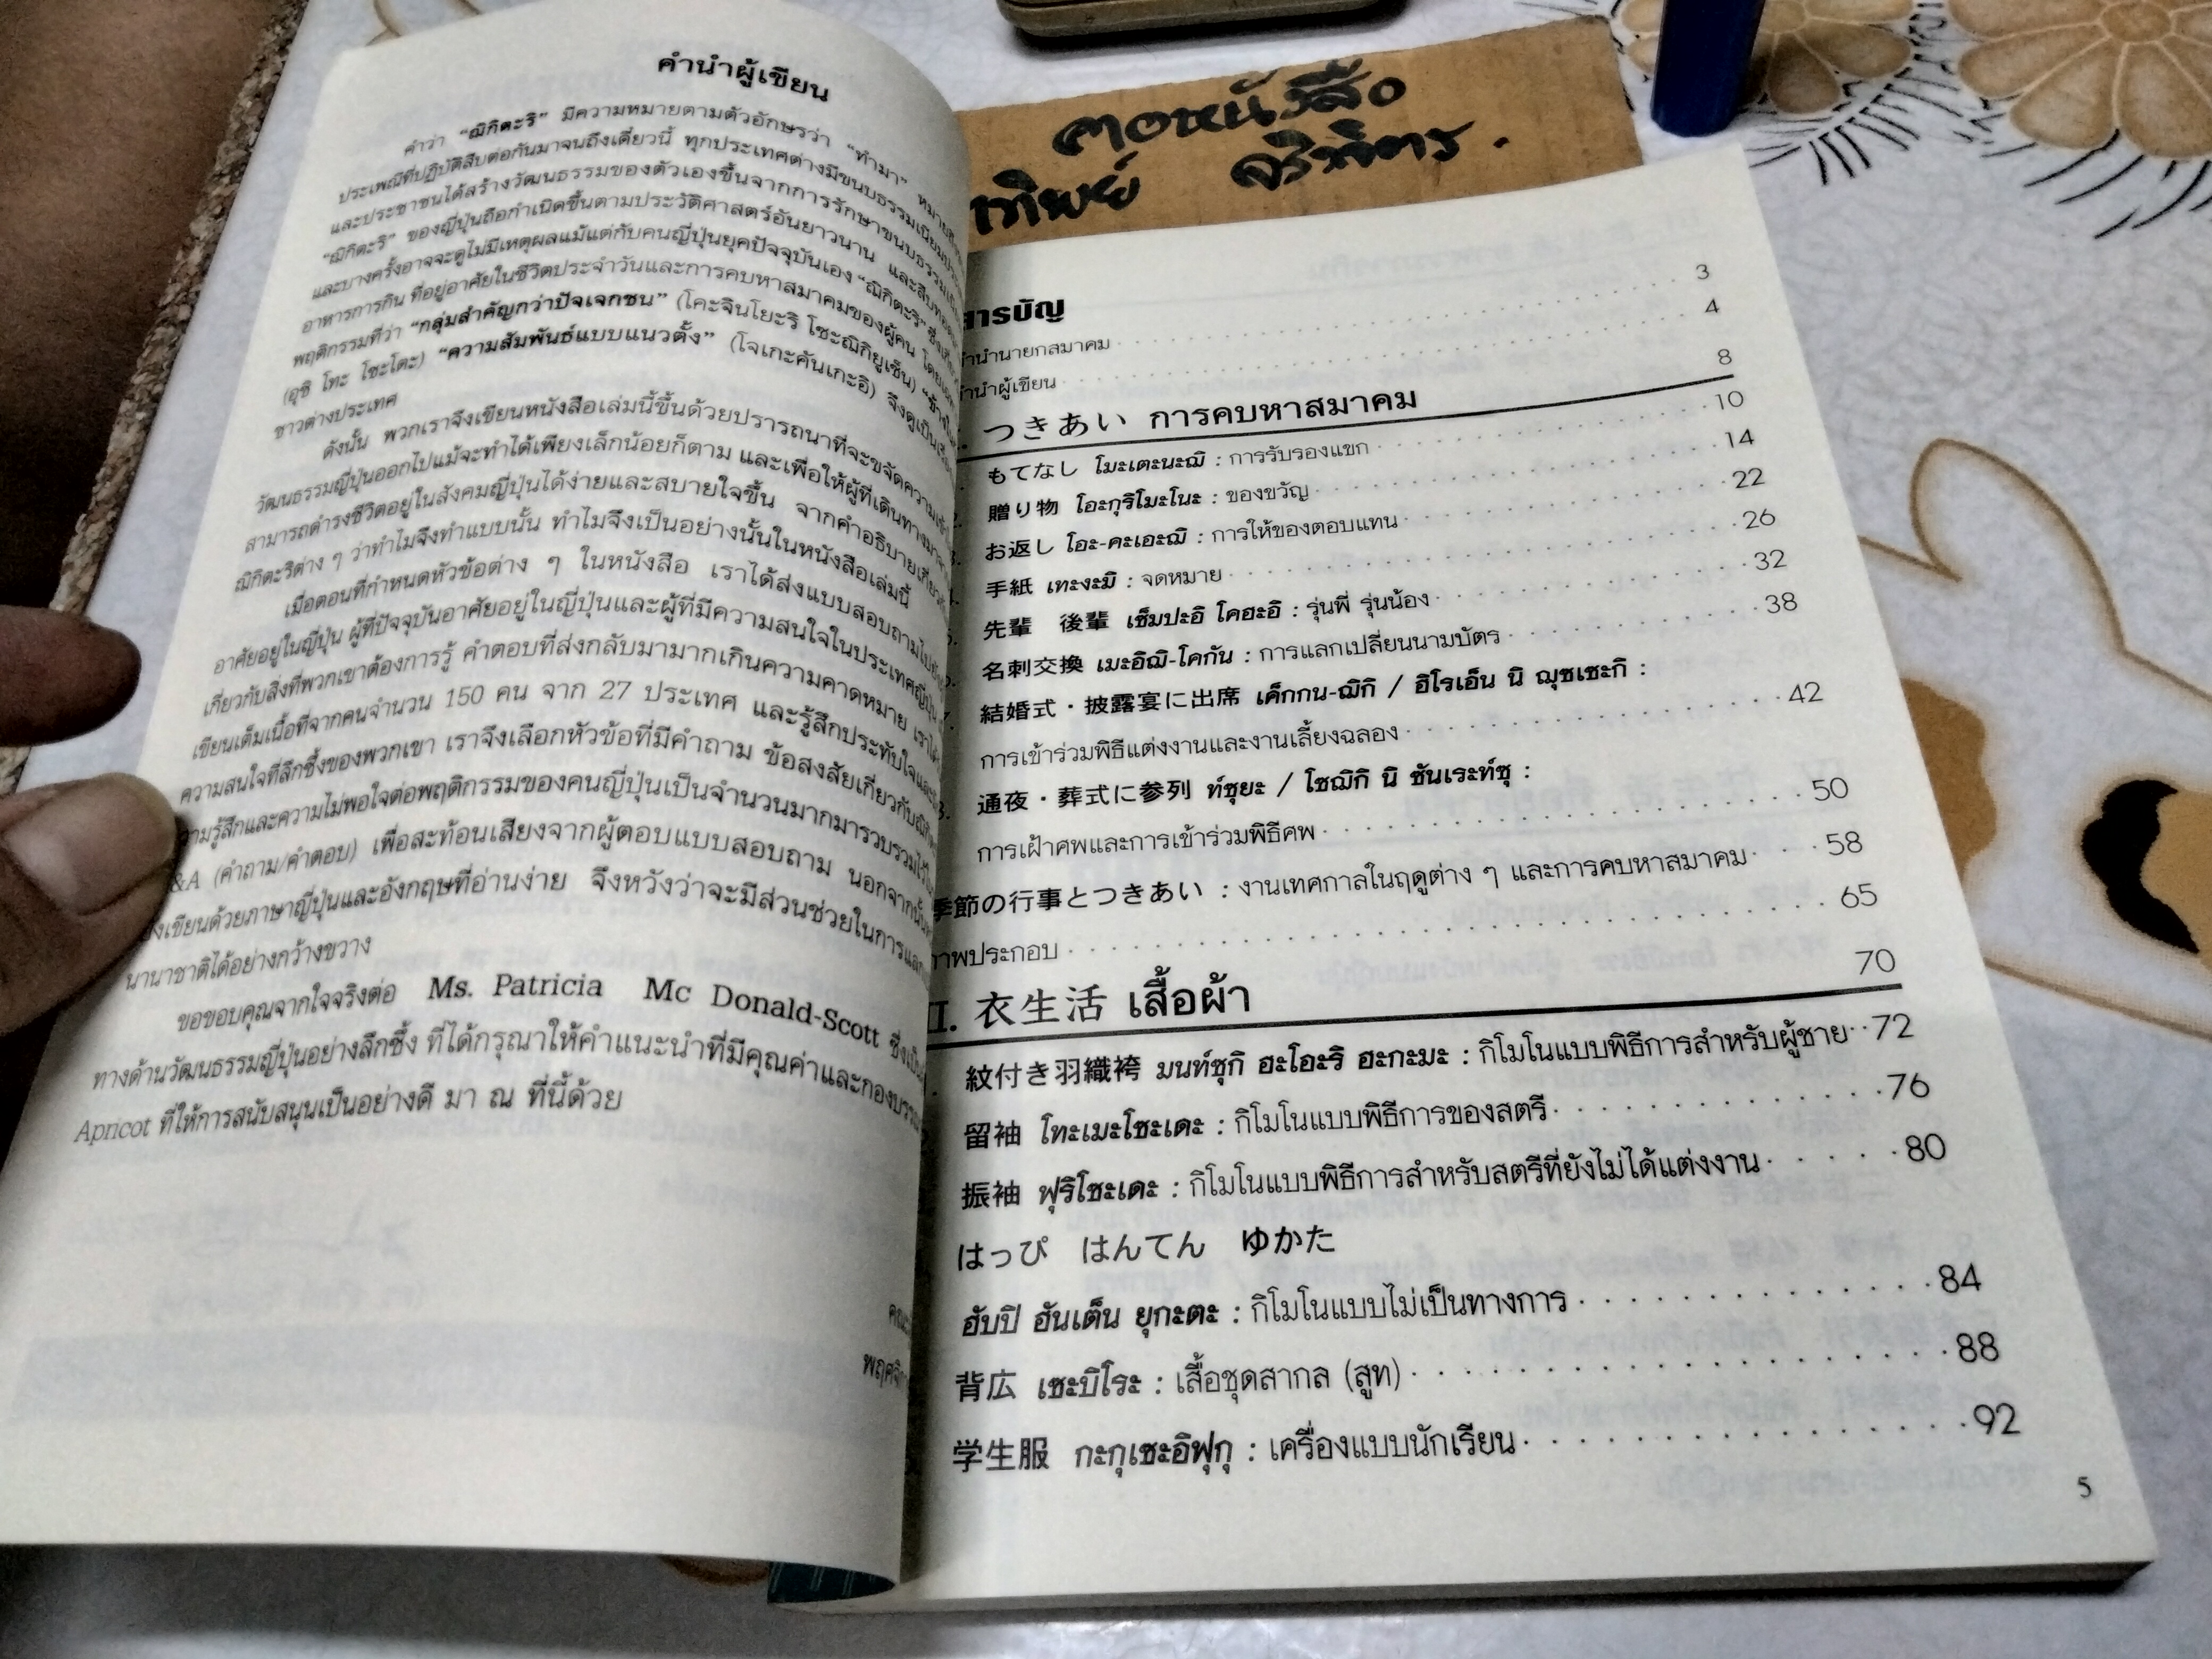 คำนำผู้เขียน
คำว่า "ฌิกิตะริ" มีความหมายตามตัวอักษรว่า "ทำมา"
ประเพณีที่ปฏิบัติสืบต่อกันมาจนถึงเดี๋ยวนี้ ทุกประเทศต่างมีขนบธรรมเนียม
และประชาชนได้สร้างวัฒนธรรมของตัวเองขึ้นจากการรักษาขนบธรรม
"ฌิกิตะริ" ของญี่ปุ่นถือกำเนิดขึ้นตามประวัติศาสตร์อันยาวนาน และสืบทอด
และบางครั้งอาจจะดูไม่มีเหตุผลแม้แต่กับคนญี่ปุ่นยุคปัจจุบันเอง "ฌิกิตะริ"
อาหารการกิน ที่อยู่อาศัยในชีวิตประจำวันและการคบหาสมาคมของผู้คน
พฤติกรรมที่ว่า "กลุ่มสำคัญกว่าปัจเจกชน" (โคะจินโยะริ โชะฌิกิยูเซ็น)
(อุชิ โทะ โซะโตะ) "ความสัมพันธ์แบบแนวตั้ง" (โจเกะคันเกะอิ) จึงดูเป็น
ชาวต่างประเทศ
ดังนั้น พวกเราจึงเขียนหนังสือเล่มนี้ขึ้นด้วยปรารถนาที่จะขจัดความ
วัฒนธรรมญี่ปุ่นออกไปแม้จะทำได้เพียงเล็กน้อยก็ตาม และเพื่อให้ผู้ที่เดินทางมา
สามารถดำรงชีวิตอยู่ในสังคมญี่ปุ่นได้ง่ายและสบายใจขึ้น จากคำอธิบายเกี่ยว
ฌิกิตะริต่าง ๆ ว่าทำไมจึงทำแบบนั้น ทำไมจึงเป็นอย่างนั้นในหนังสือเล่มนี้
เมื่อตอนที่กำหนดหัวข้อต่าง ๆ ในหนังสือ เราได้ส่งแบบสอบถามไป
อาศัยอยู่ในญี่ปุ่น ผู้ที่ปัจจุบันอาศัยอยู่ในญี่ปุ่นและผู้ที่มีความสนใจในประเทศญี่ปุ่น
เกี่ยวกับสิ่งที่พวกเขาต้องการรู้ คำตอบที่ส่งกลับมามากเกินความคาดหมาย
เขียนเต็มเนื้อที่จากคนจำนวน 150 คน จาก 27 ประเทศ และรู้สึกประทับใจ
ความสนใจที่ลึกซึ้งของพวกเขา เราจึงเลือกหัวข้อที่มีคำถาม ข้อสงสัยเกี่ยวกับ
ความรู้สึกและความไม่พอใจต่อพฤติกรรมของคนญี่ปุ่นเป็นจำนวนมากมารวบรวมไว้
&A (คำถาม/คำตอบ) เพื่อสะท้อนเสียงจากผู้ตอบแบบสอบถาม นอกจากนั้น
เขียนด้วยภาษาญี่ปุ่นและอังกฤษที่อ่านง่าย จึงหวังว่าจะมีส่วนช่วยในการ
นานาชาติได้อย่างกว้างขวาง
ขอขอบคุณจากใจจริงต่อ Ms. Patricia Mc Donald-Scott
ทางด้านวัฒนธรรมญี่ปุ่นอย่างลึกซึ้ง ที่ได้กรุณาให้คำแนะนำที่มีคุณค่าและกอง
Apricot ที่ให้การสนับสนุนเป็นอย่างดี มา ณ ที่นี้ด้วย
คอหนังสือ
เทิพย์ จริพิตร.
สารบัญ
คำนำนายกสมาคม 3
คำนำผู้เขียน 4
つきあい การคบหาสมาคม 8
もてなし โมะเตะนะฌิ : การรับรองแขก 10
贈り物 โอะกุริโมะโนะ : ของขวัญ 14
お返し โอะ-คะเอะฌิ : การให้ของตอบแทน 22
手紙 เทะงะมิ : จดหมาย 26
先輩 後輩 เซ็มปะอิ โคฮะอิ : รุ่นพี่ รุ่นน้อง 32
名刺交換 เมะอิฌิ-โคกัน : การแลกเปลี่ยนนามบัตร 38
結婚式・披露宴に出席 เค็กกน-ฌิกิ / ฮิโรเอ็น นิ ฌุชเซะกิ :
การเข้าร่วมพิธีแต่งงานและงานเลี้ยงฉลอง 42
通夜・葬式に参列 ท์ซุยะ / โซฌิกิ นิ ซันเระท์ซุ :
การเฝ้าศพและการเข้าร่วมพิธีศพ 50
季節の行事とつきあい : งานเทศกาลในฤดูต่าง ๆ และการคบหาสมาคม 58
ภาพประกอบ 65
II. 衣生活 เสื้อผ้า 70
紋付き羽織袴 มนท์ซุกิ ฮะโอะริ ฮะกะมะ : กิโมโนแบบพิธีการสำหรับผู้ชาย 72
留袖 โทะเมะโซะเดะ : กิโมโนแบบพิธีการของสตรี 76
振袖 ฟุริโซะเดะ : กิโมโนแบบพิธีการสำหรับสตรีที่ยังไม่ได้แต่งงาน 80
はっぴ はんてん ゆかた
ฮับปิ ฮันเต็น ยุกะตะ : กิโมโนแบบไม่เป็นทางการ 84
背広 เซะบิโระ : เสื้อชุดสากล (สูท) 88
学生服 กะกุเซะอิฟุกุ : เครื่องแบบนักเรียน 92
5